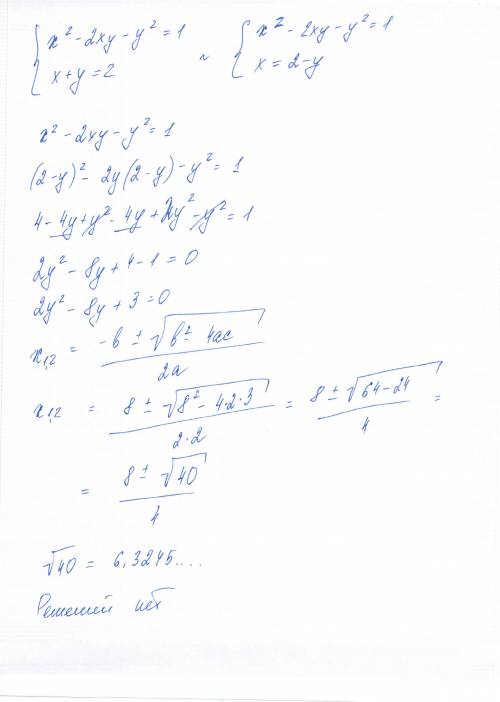 { x² - 2xy - y² = 1 ~ { x² - 2xy - y² = 1
{ x + y = 2 { x = 2 - y
x² - 2xy - y² = 1
(2-y)² - 2y(2-y) - y² = 1
4 - 4y + y² - 4y + 2y² - y² = 1
2y² - 8y + 4 - 1 = 0
2y² - 8y + 3 = 0
x₁,₂ = (-b ± √(b² - 4ac)) / 2a
x₁,₂ = (8 ± √(8² - 4·2·3)) / 2·2 = (8 ± √(64 - 24)) / 4 =
= (8 ± √40) / 4
√40 = 6,3245....
Решений нет